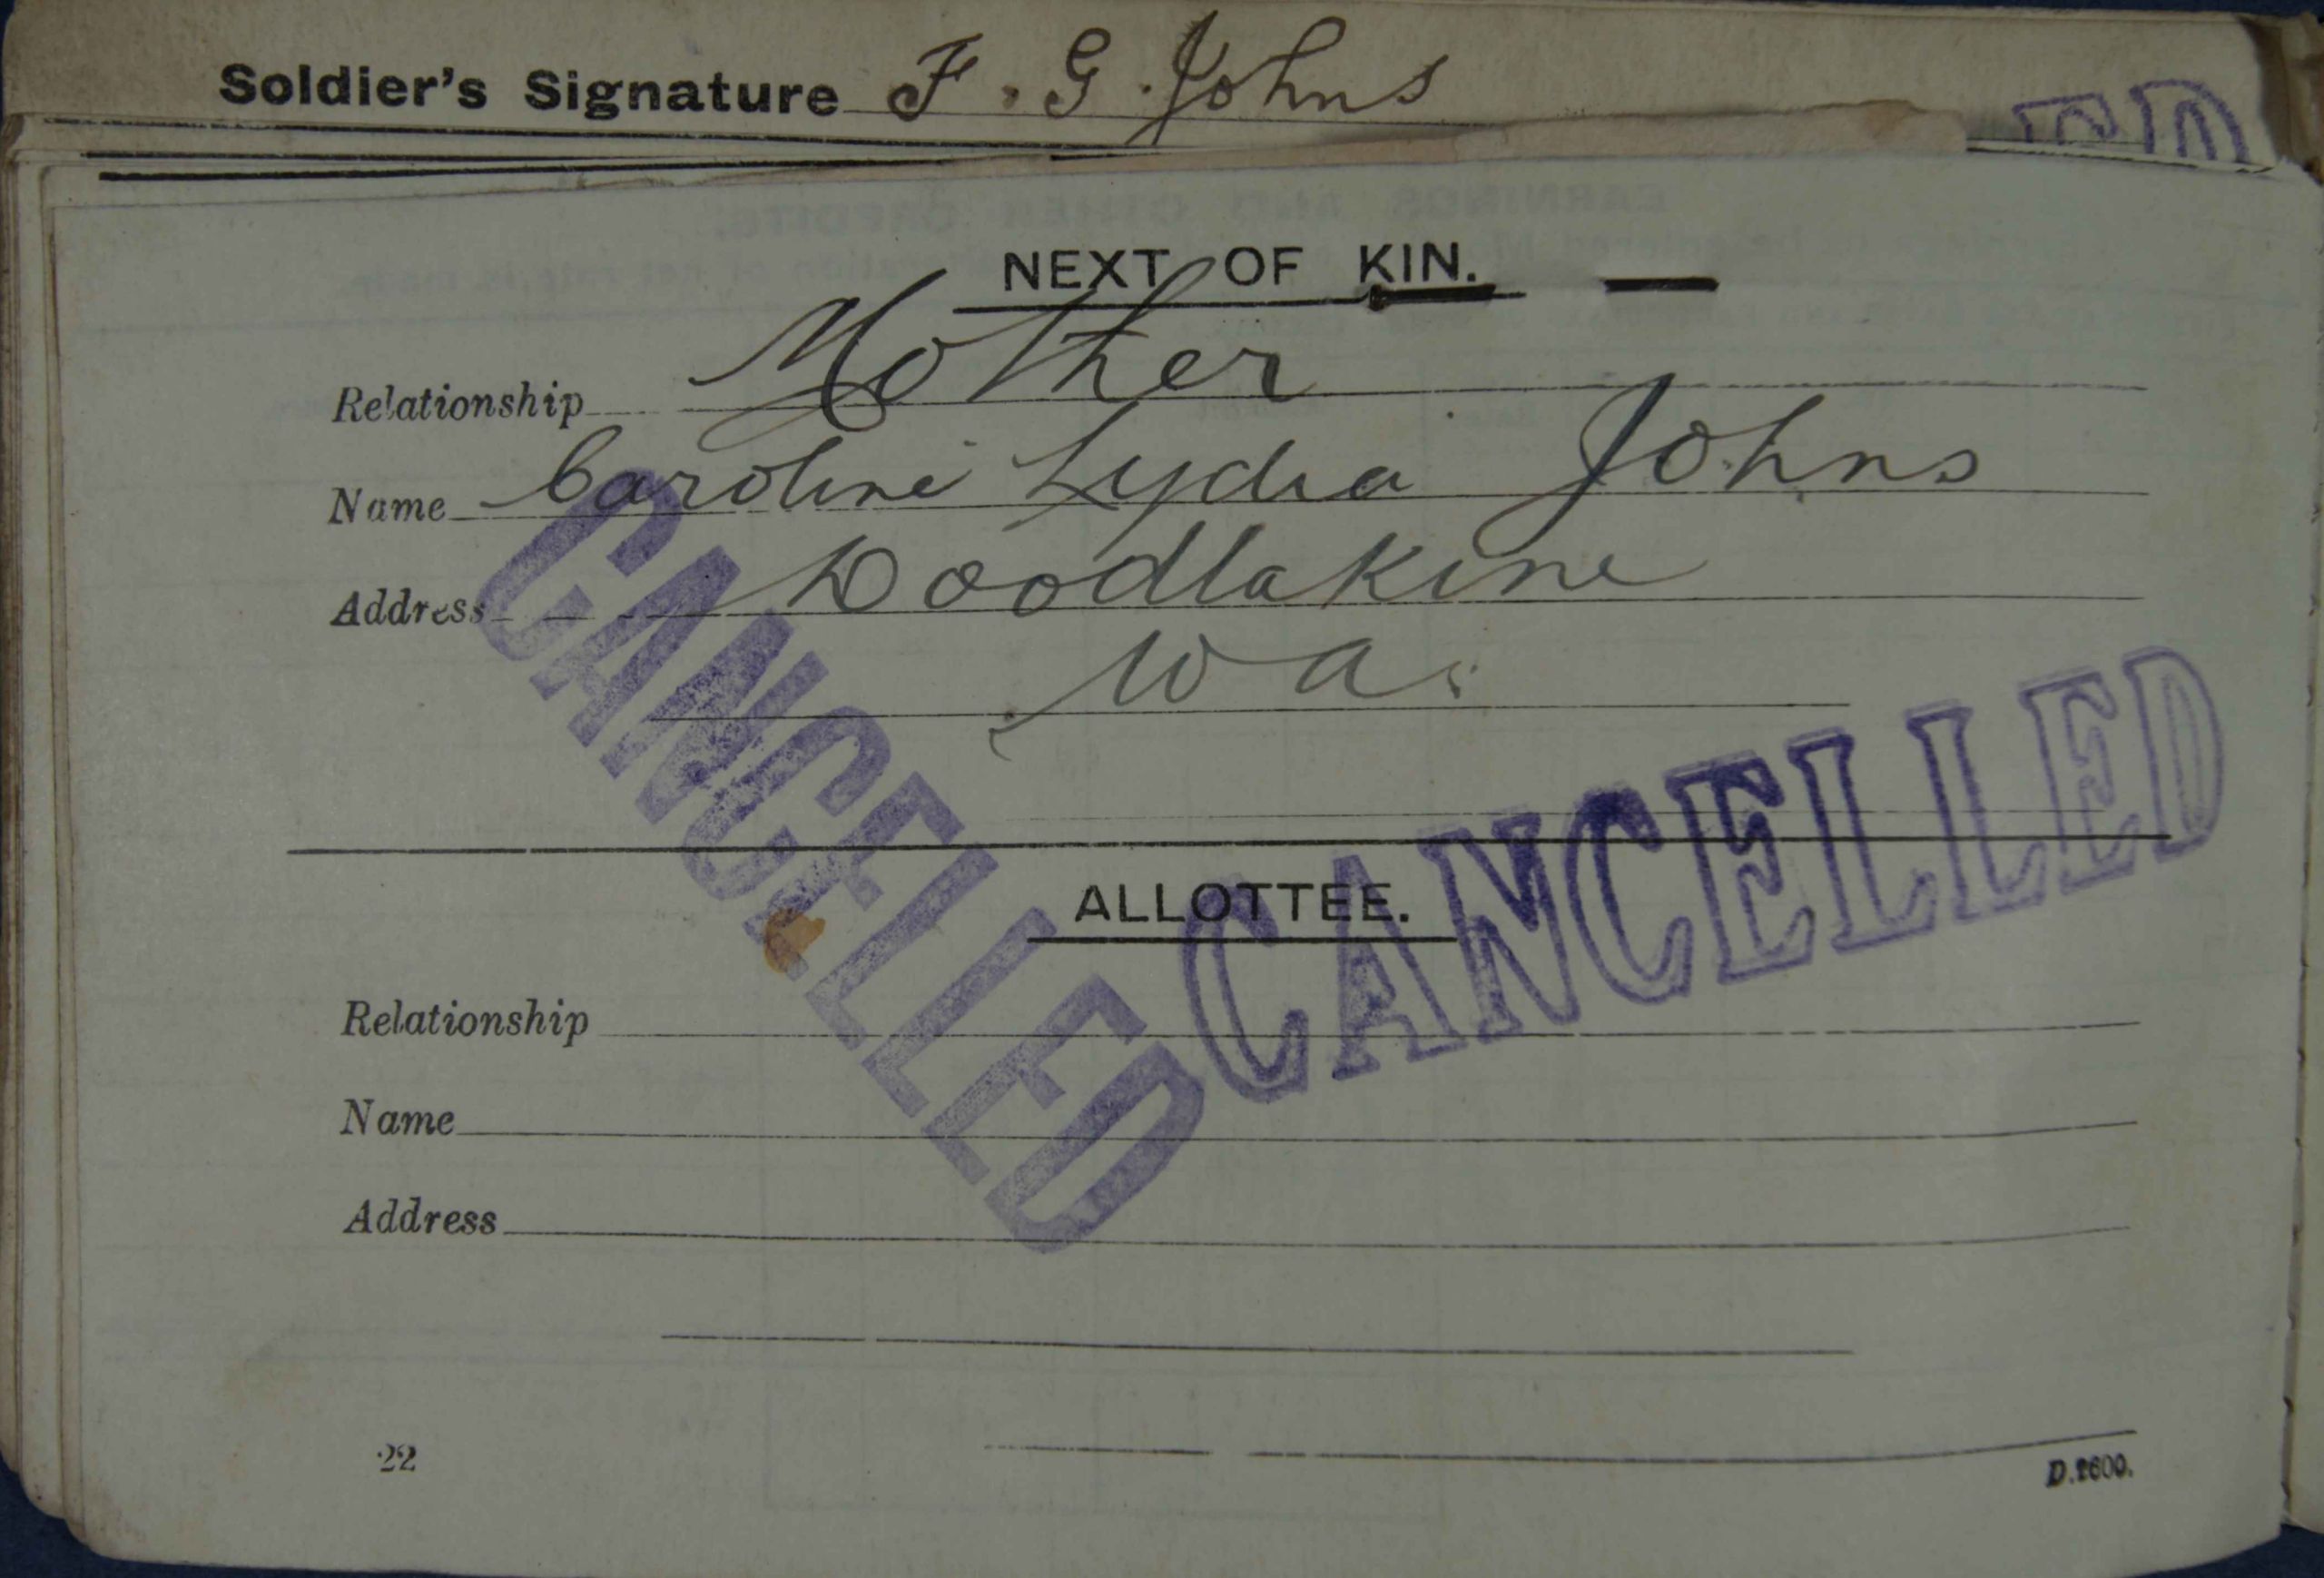 Soldier's Signature F. G. Johns
ED
NEXT OF KIN.
Relationship Mother
Name Caroline Lydia Johns
Address Doodlakine
W a.
CANCELLED
CANCELLED
ALLOTTEE.
Relationship
Name
Address
22
D.2600.
EARNINGS AND OTHER CREDITS.